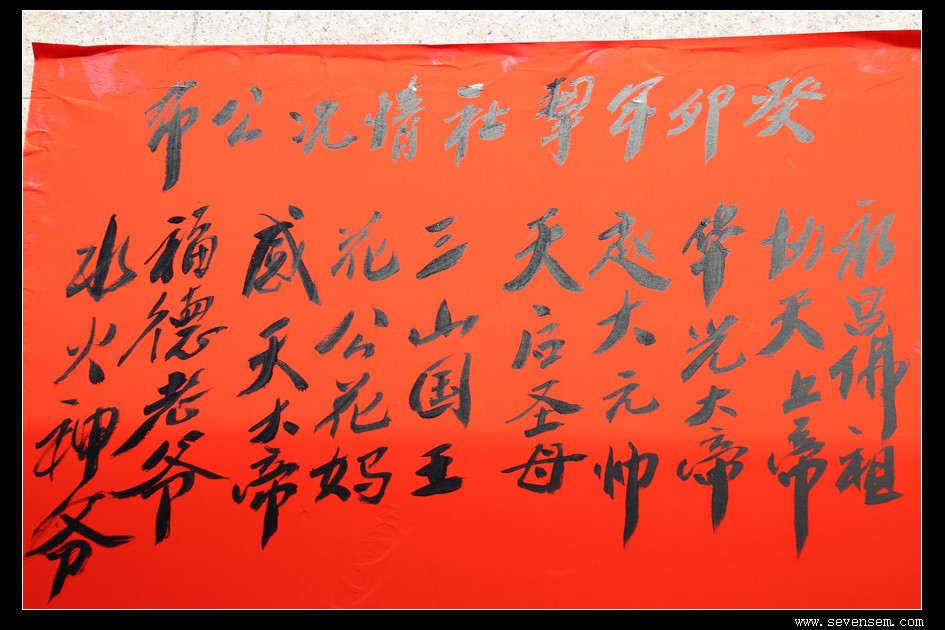 癸卯年犂社情况公布
永昌佛祖
协天上帝
华光大帝
赵大元帅
天后圣母
三山国王
花公花妈
感天大帝
福德老爷
水火神爷
www.sevensem.com